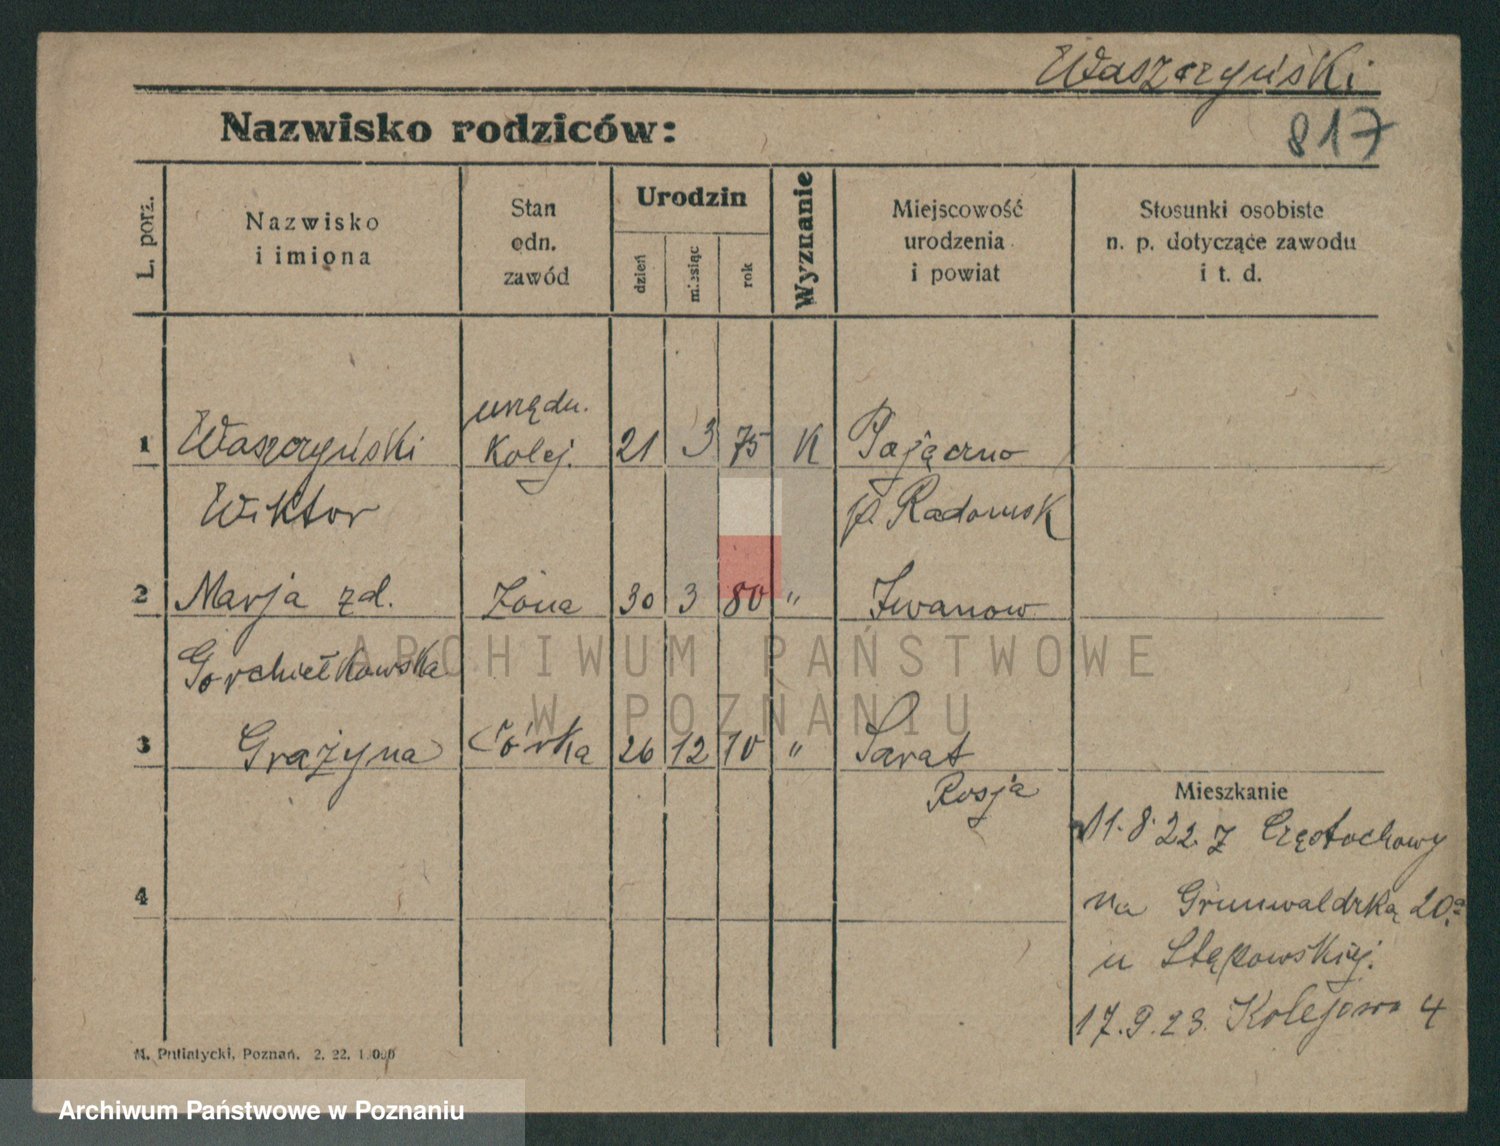 Waszczyński
817
Nazwisko rodziców:
L. porz.
Nazwisko
i imiona
Stan
odn.
zawód
Urodzin
dzień
miesiąc
rok
Wyznanie
Miejscowość
urodzenia
i powiat
Stosunki osobiste
n. p. dotyczące zawodu
i t. d.
urzędn.
1 Waszczyński Kolej. 21 3 75 K Pajęczno
Wiktor p. Radomsk
2 Marja zd. Żona 30 3 80 " Iwanow
Gorchiełkowska
3 Grażyna Córka 26 12 10 " Sarat
Rosja
Mieszkanie
11.8.22. z Częstochowy
4
na Grunwaldzką 20a
u Stępowskiej.
17.9.23. Kolejowa 4
M. Putiatycki, Poznań. 2. 22. 1.000
ARCHIWUM PAŃSTWOWE
W POZNANIU
Archiwum Państwowe w Poznaniu